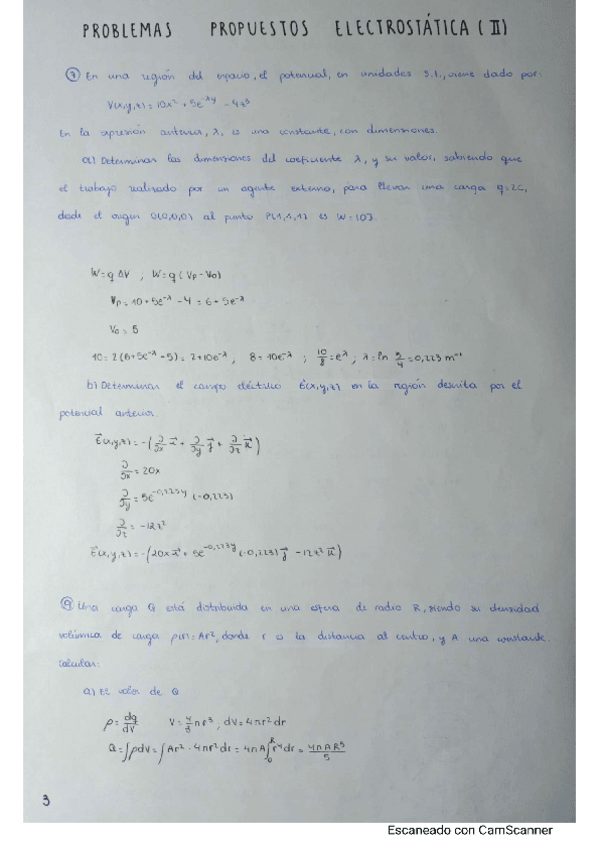 PROBLEMAS PROPUESTOS ELECTROSTÁTICA (II)
⑦ En una región del espacio, el potencial, en unidades S.I., viene dado por:
V(x,y,z) = 10x² + 5e^-λy - 4z³
En la expresión anterior, λ, es una constante, con dimensiones.
a) Determinar las dimensiones del coeficiente λ, y su valor, sabiendo que
el trabajo realizado por un agente externo, para llevar una carga q=2C,
desde el origen O(0,0,0) al punto P(1,1,1) es W=10J.
W=q ΔV ; W=q (Vp - Vo)
Vp = 10 + 5e^-λ - 4 = 6 + 5e^-λ
Vo = 5
10 = 2(6+5e^-λ - 5) = 2 + 10e^-λ, 8 = 10e^-λ ; 10/8 = e^λ ; λ = ln 5/4 = 0,223 m⁻¹
b) Determinar el campo eléctrico E(x,y,z) en la región descrita por el
potencial anterior.
E⃗(x,y,z) = -(∂/∂x i⃗ + ∂/∂y j⃗ + ∂/∂z k⃗)
∂/∂x = 20x
∂/∂y = 5e^-0,223y (-0,223)
∂/∂z = -12z²
E⃗(x,y,z) = -(20x i⃗ + 5e^-0,223y (-0,223) j⃗ - 12z² k⃗)
Una carga Q está distribuida en una esfera de radio R, siendo su densidad
volúmica de carga ρ(r) = Ar², donde r es la distancia al centro, y A una constante.
Calcular:
a) El valor de Q
ρ = dq/dV V = 4/3 πr³, dV = 4πr² dr
Q = ∫ρdV = ∫Ar² · 4πr² dr = 4πA∫₀ᴿ r⁴ dr = 4πAR⁵/5
3
Escaneado con CamScanner